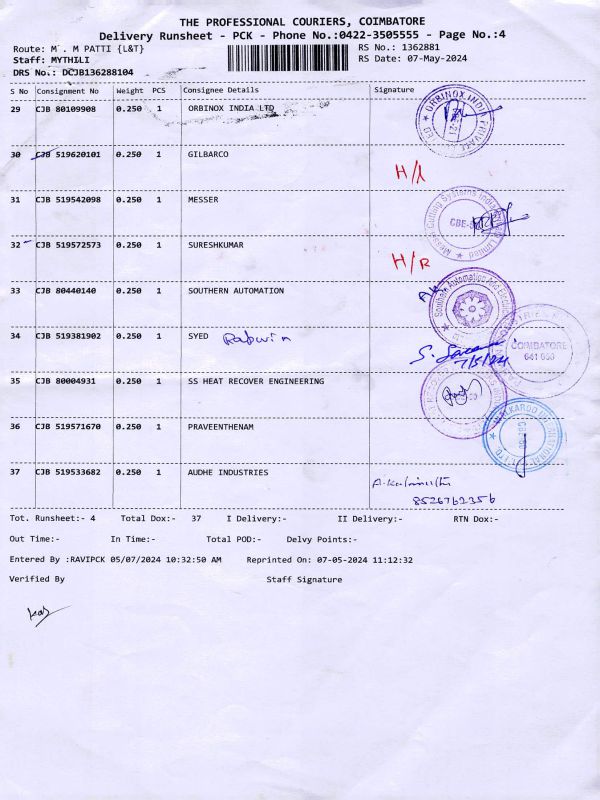 THE PROFESSIONAL COURIERS, COIMBATORE
Delivery Runsheet - PCK - Phone No.:0422-3505555 - Page No.:4
Route: M . M PATTI {L&T}
RS No.: 1362881
Staff: MYTHILI
RS Date: 07-May-2024
DRS No.: DCJB136288104
S No Consignment No Weight PCS Consignee Details Signature
29 CJB 80109908 0.250 1 ORBINOX INDIA LTD
ORBINOX INDIA PRIVATE
30 CJB 519620101 0.250 1 GILBARCO
31 CJB 519542098 0.250 1 MESSER
Messer Cutting Systems India Private Limited
32 CJB 519572573 0.250 1 SURESHKUMAR
H/R
33 CJB 80440140 0.250 1 SOUTHERN AUTOMATION
Southern Automation And
34 CJB 519381902 0.250 1 SYED
COIMBATORE
641 060
7/5/24
35 CJB 80004931 0.250 1 SS HEAT RECOVER ENGINEERING
36 CJB 519571670 0.250 1 PRAVEENTHENAM
WALKAROO INTERNATIONAL
37 CJB 519533682 0.250 1 AUDHE INDUSTRIES
8526762356
Tot. Runsheet:- 4 Total Dox:- 37 I Delivery:- II Delivery:- RTN Dox:-
Out Time:- In Time:- Total POD:- Delvy Points:-
Entered By :RAVIPCK 05/07/2024 10:32:50 AM Reprinted On: 07-05-2024 11:12:32
Verified By Staff Signature